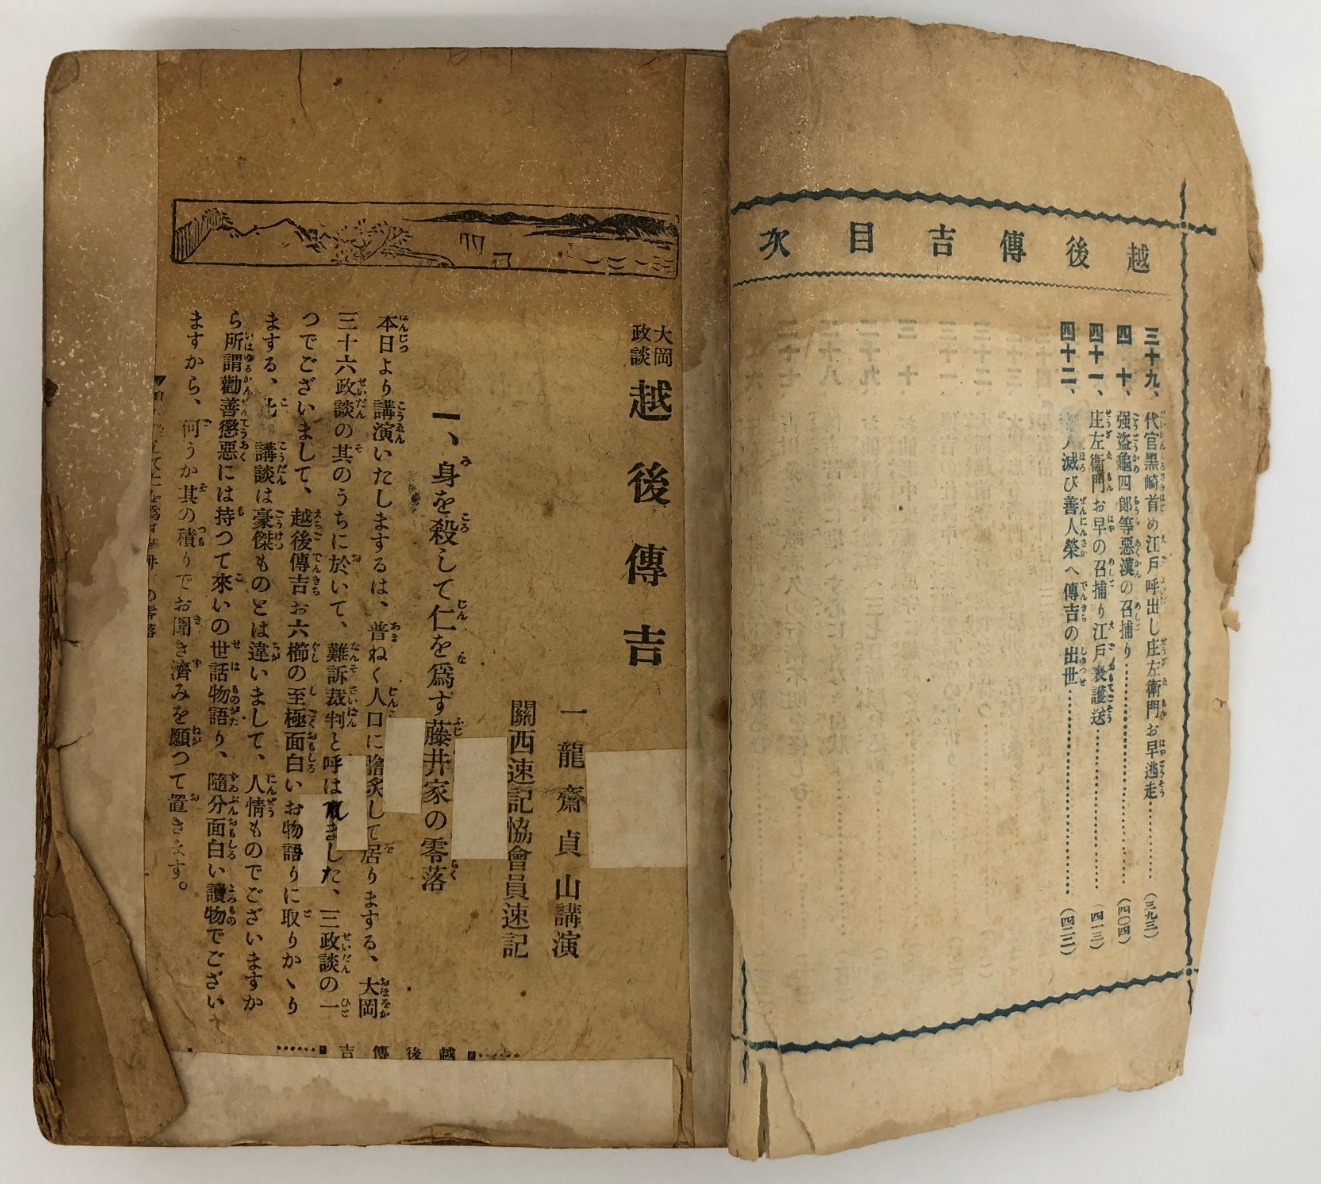 越後傳吉目次
三十九、代官黑崎首め江戸呼出し庄左衞門お早逃走…………(三九三)
四十、强盗龜四郎等惡漢の召捕り…………(四〇四)
四十一、庄左衞門お早の召捕り江戸表護送…………(四一三)
四十二、人滅び善人榮へ傳吉の出世…………(四二二)
大岡政談 越後傳吉
一龍齋貞山講演
關西速記協會員速記
一、身を殺して仁を爲す藤井家の零落
本日より講演いたしまするは、普ねく人口に膾炙して居りまする、大岡
三十六政談の其のうちに於いて、難訴裁判と呼はれました、三政談の一
つでございまして、越後傳吉お六櫛の至極面白いお物語りに取りかゝり
まする、此講談は豪傑ものとは違いまして、人情ものでございますか
ら所謂勸善懲惡には持つて來いの世話物語り、隨分面白い讀物でござい
ますから、何うか其の積りでお聞き濟みを願つて置きます。
越後傳吉